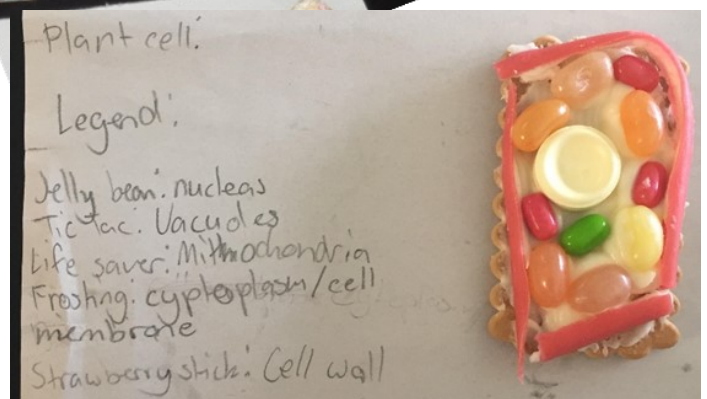 Plant cell:
Legend:
Jelly bean: nucleas
Tic Tac: Vacuoles
Life saver: Mithochondria
Frosting: cyptoplasm/cell
membrane
Strawberry stick: Cell wall